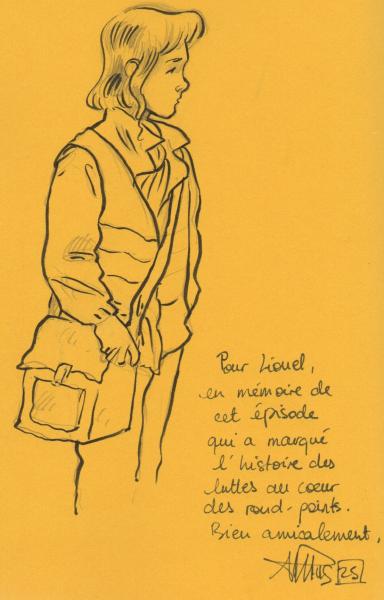 Pour Lionel,
en mémoire de
cet épisode
qui a marqué
l'histoire des
luttes au coeur
des rond-points.
Bien amicalement,
[25]